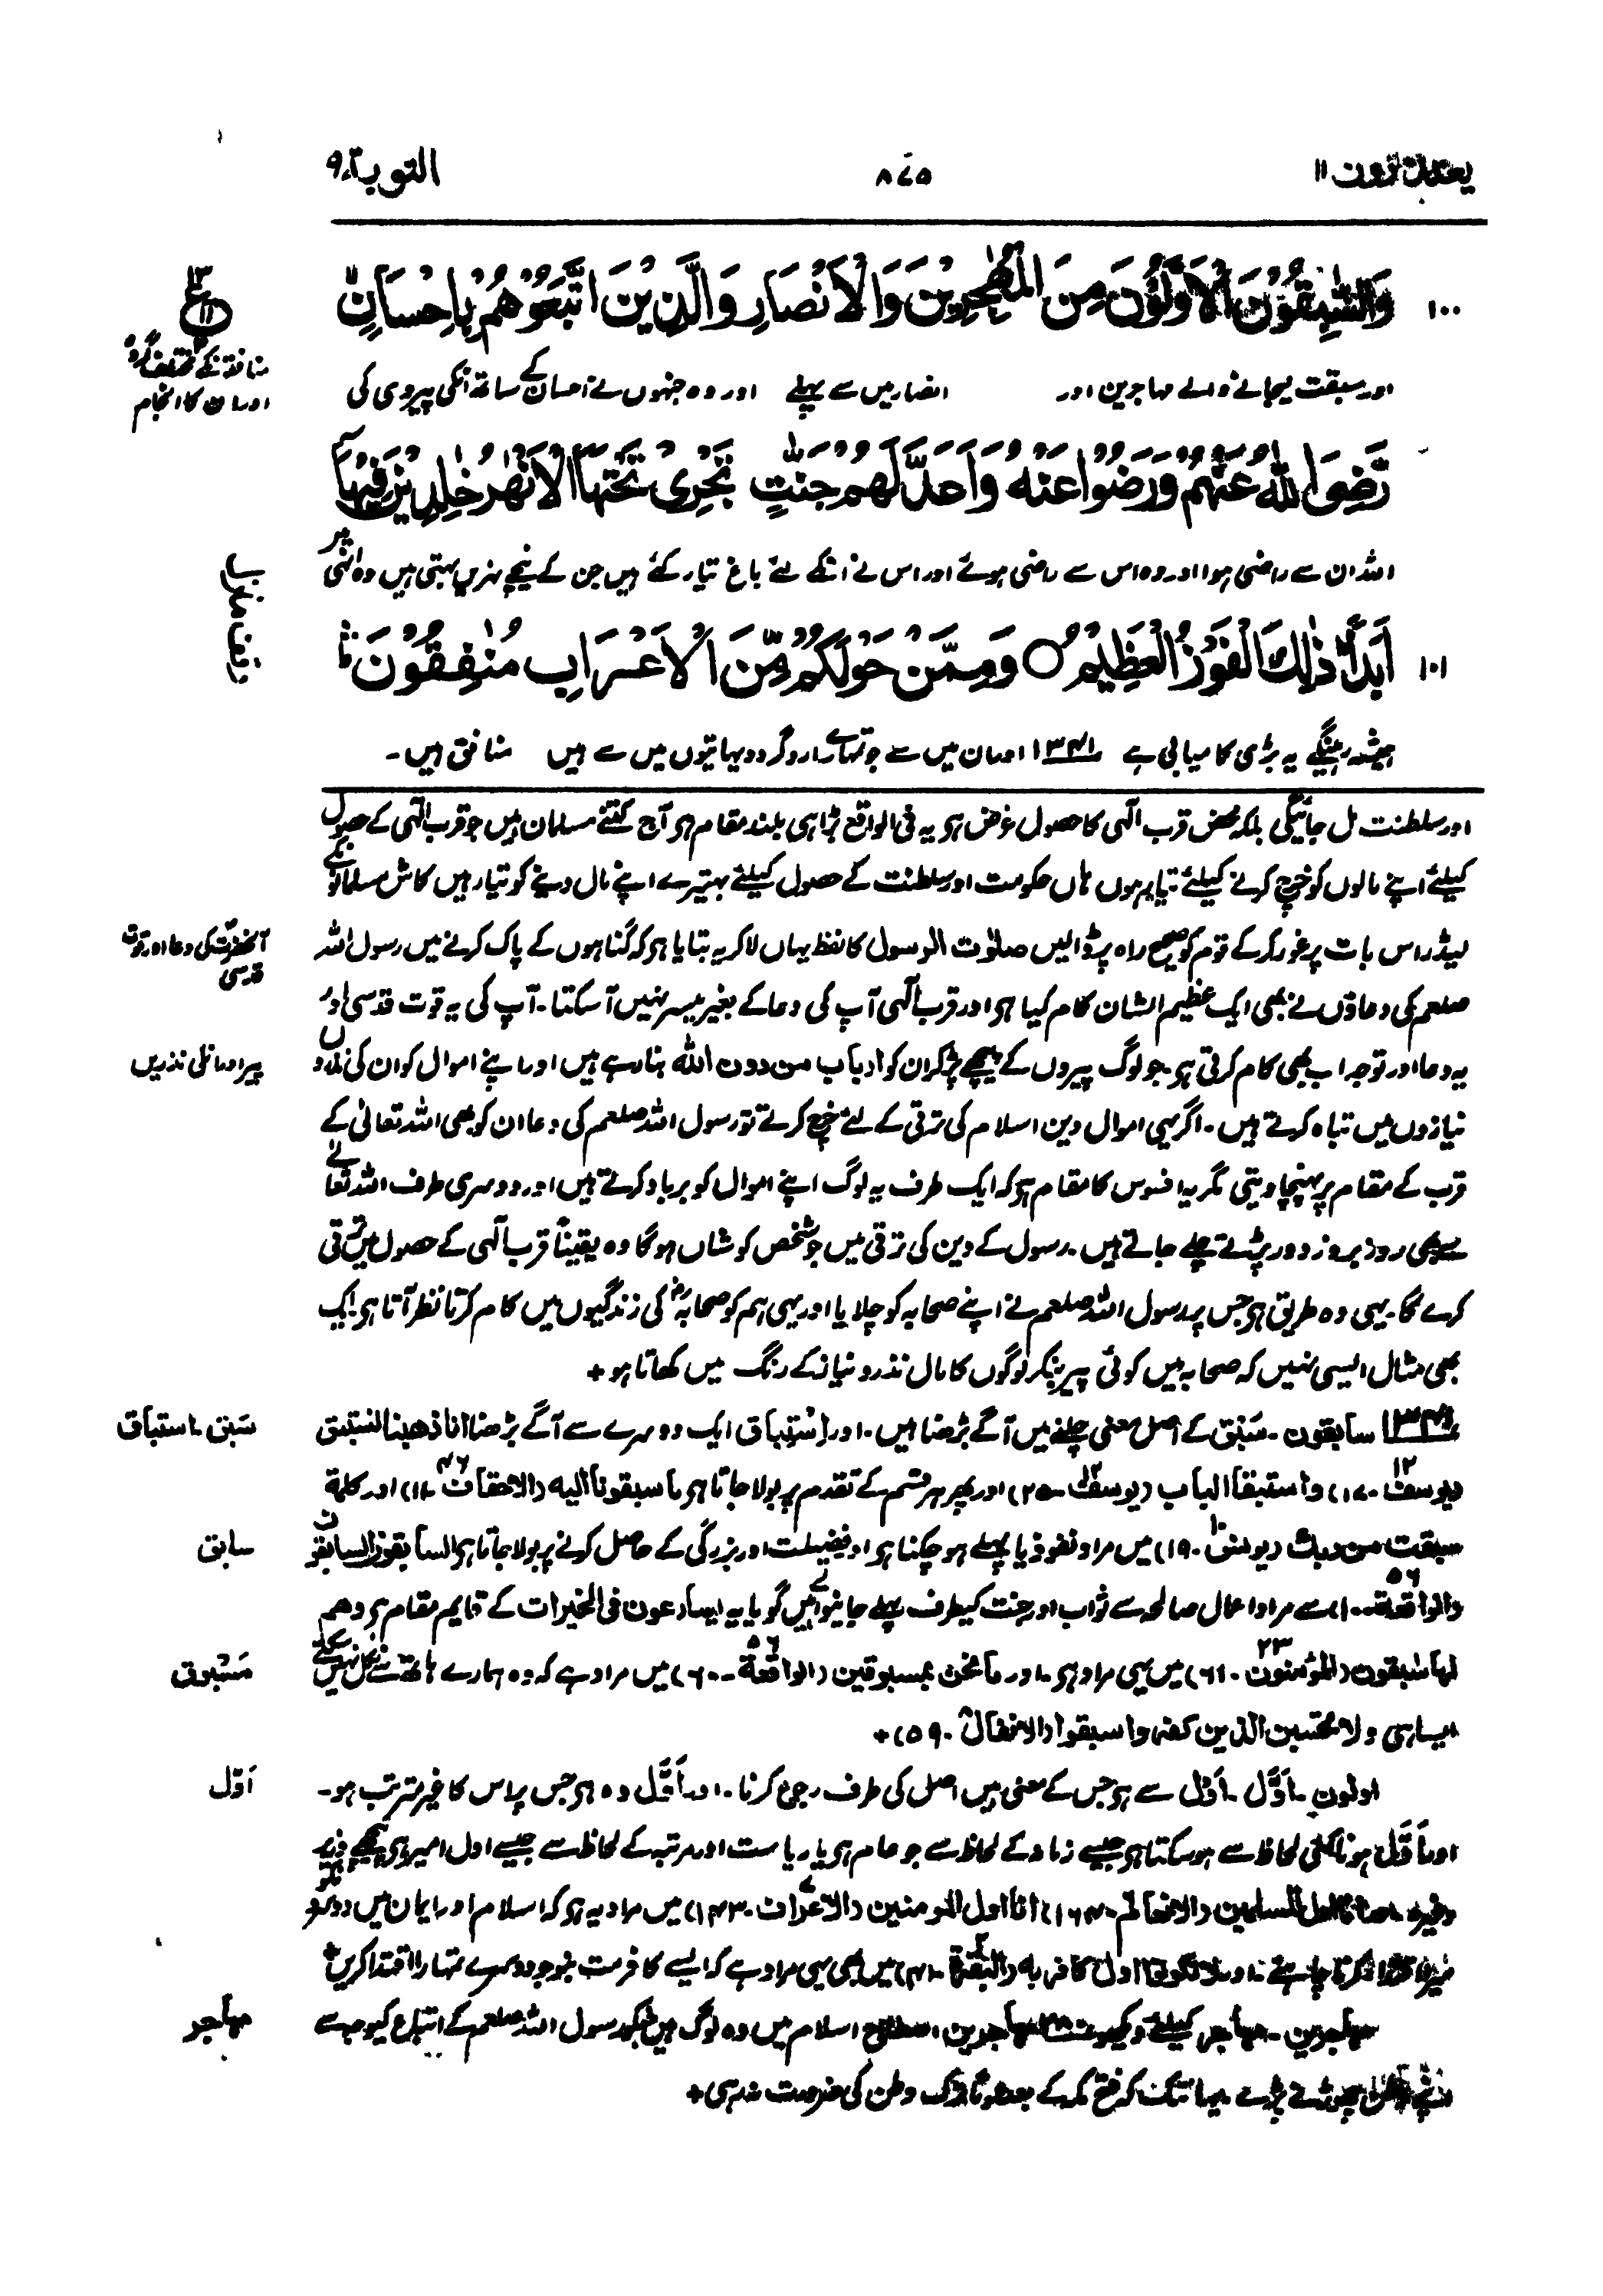 یعتذرون ۱۱
۸۷۵
التوبۃ ۹
۱۰۰ وَالسّٰبِقُوْنَ الْاَوَّلُوْنَ مِنَ الْمُهٰجِرِيْنَ وَالْاَنْصَارِ وَالَّذِيْنَ اتَّبَعُوْهُمْ بِاِحْسَانٍ
منافقوں کے مختلف گروہ
اور ان کا انجام
اور سبقت لیجانے والے مہاجرین اور انصار میں سے پہلے اور وہ جنہوں نے احسان کے ساتھ انکی پیروی کی
رَّضِيَ اللّٰهُ عَنْهُمْ وَرَضُوْا عَنْهُ وَاَعَدَّ لَهُمْ جَنّٰتٍ تَجْرِيْ تَحْتَهَا الْاَنْهٰرُ خٰلِدِيْنَ فِيْهَا
اللہ ان سے راضی ہوا اور وہ اس سے راضی ہوئے اور اس نے انکے لئے باغ تیار کئے ہیں جن کے نیچے نہریں بہتی ہیں وہ انہی میں
۱۰۱ اَبَدًا ذٰلِكَ الْفَوْزُ الْعَظِيْمُ ○ وَمِمَّنْ حَوْلَكُمْ مِّنَ الْاَعْرَابِ مُنٰفِقُوْنَ
ہمیشہ رہینگے یہ بڑی کامیابی ہے ۱۳۴۱ اور ان میں سے جو تمہارے اردگرد دیہاتیوں میں سے ہیں منافق ہیں۔
اور سلطنت مل جائیگی بلکہ محض قرب الٰہی کا حصول غرض ہو یہ فی الواقع بڑا ہی بلند مقام ہو آج کتنے مسلمان ہیں جو قرب الٰہی کے حصول
کیلئے اپنے مالوں کو خرچ کرنے کیلئے تیار ہوں ہاں حکومت اور سلطنت کے حصول کیلئے بہتیرے اپنے مال دینے کو تیار ہیں کاش مسلمانوں کے
لیڈر اس بات پر غور کرکے قوم کو صحیح راہ پر ڈالیں صلوٰت الرسول کا لفظ یہاں لاکر یہ بتایا ہو کہ گناہوں کے پاک کرنے میں رسول اللہ
آنحضرتؐ کی دعا اور قوت
قدسی
صلعم کی دعاؤں نے بھی ایک عظیم الشان کام کیا ہو اور قرب الٰہی آپ کی دعا کے بغیر میسر نہیں آسکتا۔ آپ کی یہ قوت قدسی اور
یہ دعا اور توجہ اب بھی کام کرتی ہو۔ جو لوگ پیروں کے پیچھے پڑکر ان کو ارباب من دون اللہ بنا رہے ہیں اور اپنے اموال کو ان کی نذروں
پیر اور انکی نذریں
نیازوں میں تباہ کرتے ہیں۔ اگر یہی اموال دین اسلام کی ترقی کے لئے خرچ کرتے تو رسول اللہ صلعم کی دعا ان کو بھی اللہ تعالیٰ کے
قرب کے مقام پر پہنچا دیتی مگر یہ افسوس کا مقام ہو کہ ایک طرف یہ لوگ اپنے اموال کو برباد کرتے ہیں اور دوسری طرف اللہ تعالےٰ
سے بھی روز بروز دور پڑتے چلے جاتے ہیں۔ رسول کے دین کی ترقی میں جو شخص کوشاں ہوگا وہ یقیناً قرب الٰہی کے حصول میں ترقی
کرے گا۔ یہی وہ طریق ہو جس پر رسول اللہ صلعم نے اپنے صحابہ کو چلایا اور یہی ہم کو صحابہؓ کی زندگیوں میں کام کرتا نظر آتا ہو۔ ایک
بھی مثال ایسی نہیں کہ صحابہ میں کوئی پیر بنکر لوگوں کا مال نذر و نیاز کے رنگ میں کھاتا ہو +
۱۳۴۱ سابقون۔ سَبْق کے اصل معنی چلنے میں آگے بڑھنا ہیں۔ اور اِسْتِبَاق ایک دوسرے سے آگے بڑھنا انا ذهبنا نستبق
سَبَق۔ استباق
(یوسف ۱۲۔ ۱۷) واستبقا الباب (یوسف ۱۲۔ ۲۵) اور پھر ہر قسم کے تقدم پر بولا جاتا ہو ما سبقونا الیه (الاحقاف ۴۶۔ ۱۱) اور کلمة
سبقت من ربك (یونس ۱۰۔ ۱۹) میں مراد نفوذ یا پہلے ہو چکنا ہو اور فضیلت اور بزرگی کے حاصل کرنے پر بولا جاتا ہو السابقون السابقون
سابق
(الواقعة ۵۶۔ ۱۰) سے مراد اعمال صالحہ سے ثواب اور جنت کیطرف پہلے جانیوالے ہیں گویا یہ یسارعون فی الخیرات کے قایم مقام ہو وهم
لها سٰبقون (المؤمنون ۲۳۔ ۶۱) میں یہی مراد ہو۔ اور ما نحن بمسبوقین (الواقعة ۵۶۔ ۶۰) میں مراد ہے کہ وہ ہمارے ہاتھ سے نکل نہیں سکتے
مَسْبُوق
ایسا ہی ولا یحسبن الذین کفروا سبقوا (الانفال ۸۔ ۵۹) +
اولون۔ اَوَّل۔ اَوْل سے ہو جس کے معنی ہیں اصل کی طرف رجوع کرنا۔ اور اَوَّل وہ ہو جس پر اس کا غیر مترتب ہو۔
اَوّل
اور اَوَّل ہونا کئی لحاظ سے ہو سکتا ہو جیسے زمانہ کے لحاظ سے جو عام ہو یا ریاست اور مرتبہ کے لحاظ سے جیسے اول امیر ہو پیچھے وزیر
وغیرہ۔ انا اول المسلمین (الانعام ۔ ۱۶۴) انا اول المومنین (الاعراف ۷۔ ۱۴۳) میں مراد یہ ہو کہ اسلام اور ایمان میں دوسروں کو
میرا اقتدا کرنا چاہئے۔ اور لا تکونوا اول کافر به (البقرة ۲۔ ۴۱) میں بھی یہی مراد ہے کہ ایسے کافر مت بنو جو دوسرے تمہارا اقتدا کریں +
مہاجرین۔ مہاجر کیلئے دیکھو مہاجرین اصطلاح اسلام میں وہ لوگ ہیں جنکو رسول اللہ صلعم کے اتباع کیوجہ سے
مہاجر
اپنے وطن چھوڑنے پڑے یہانتک کہ فتح مکہ کے بعد ترک وطن کی ضرورت نہ رہی +